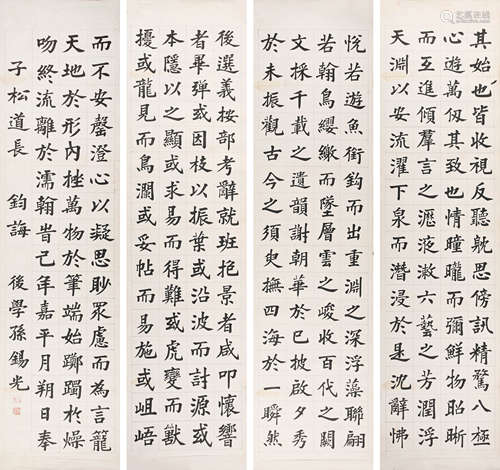 其始也皆收視反聽耽思傍訊精騖八極
心遊萬仞其致也情曈曨而彌鮮物昭晰
而互進傾羣言之瀝液漱六藝之芳潤浮
天淵以安流濯下泉而潛浸於是沈辭怫
悅若遊魚銜鉤而出重淵之深浮藻聯翩
若翰鳥纓繳而墜層雲之峻收百代之闕
文採千載之遺韻謝朝華於已披啟夕秀
於未振觀古今之須臾撫四海於一瞬然
後選義按部考辭就班抱景者咸叩懷響
者畢彈或因枝以振葉或沿波而討源或
本隱以之顯或求易而得難或虎變而獸
擾或龍見而鳥瀾或妥帖而易施或岨峿
而不安罄澄心以凝思眇眾慮而為言籠
天地於形內挫萬物於筆端始躑躅於燥
吻終流離於濡翰旹己年嘉平月朔日奉
子松道長 鈞誨 後學孫錫光